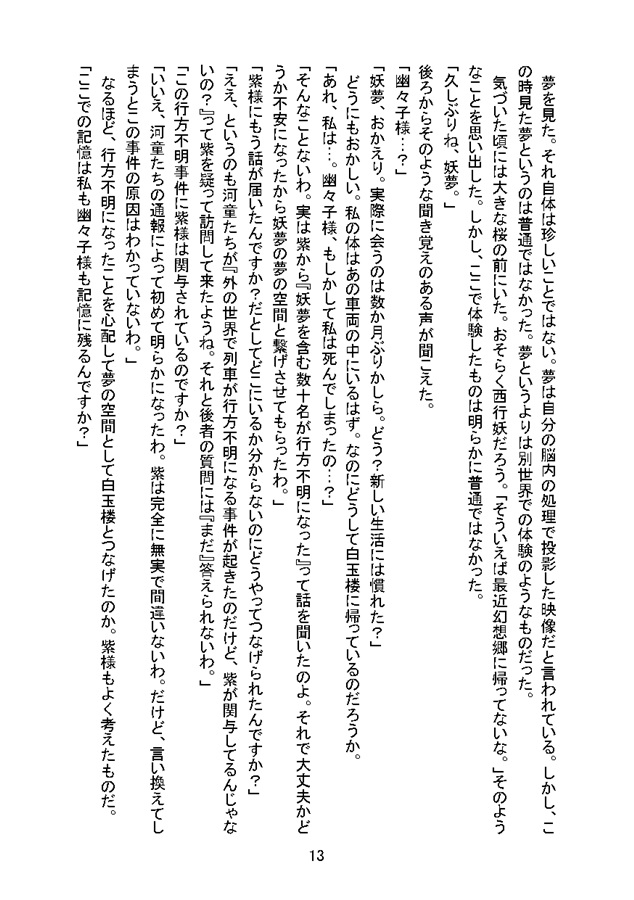 夢を見た。それ自体は珍しいことではない。夢は自分の脳内の処理で投影した映像だと言われている。しかし、こ
の時見た夢というのは普通ではなかった。夢というよりは別世界での体験のようなものだった。
　気づいた頃には大きな桜の前にいた。おそらく西行妖だろう。「そういえば最近幻想郷に帰ってないな。」そのよう
なことを思い出した。しかし、ここで体験したものは明らかに普通ではなかった。
「久しぶりね、妖夢。」
後ろからそのような聞き覚えのある声が聞こえた。
「幽々子様…？」
「妖夢、おかえり。実際に会うのは数か月ぶりかしら。どう？新しい生活には慣れた？」
　どうにもおかしい。私の体はあの車両の中にいるはず。なのにどうして白玉楼に帰っているのだろうか。
「あれ、私は…。幽々子様、もしかして私は死んでしまったの…？」
「そんなことないわ。実は紫から『妖夢を含む数十名が行方不明になった』って話を聞いたのよ。それで大丈夫かど
うか不安になったから妖夢の夢の空間と繋げさせてもらったわ。」
「紫様にもう話が届いたんですか？だとしてどこにいるか分からないのにどうやってつなげられたんですか？」
「ええ、というのも河童たちが『外の世界で列車が行方不明になる事件が起きたのだけど、紫が関与してるんじゃな
いの？』って紫を疑って訪問して来たようね。それと後者の質問には『まだ』答えられないわ。」
「この行方不明事件に紫様は関与されているのですか？」
「いいえ、河童たちの通報によって初めて明らかになったわ。紫は完全に無実で間違いないわ。だけど、言い換えてし
まうとこの事件の原因はわかっていないわ。」
　なるほど、行方不明になったことを心配して夢の空間として白玉楼とつなげたのか。紫様もよく考えたものだ。
「ここでの記憶は私も幽々子様も記憶に残るんですか？」
13